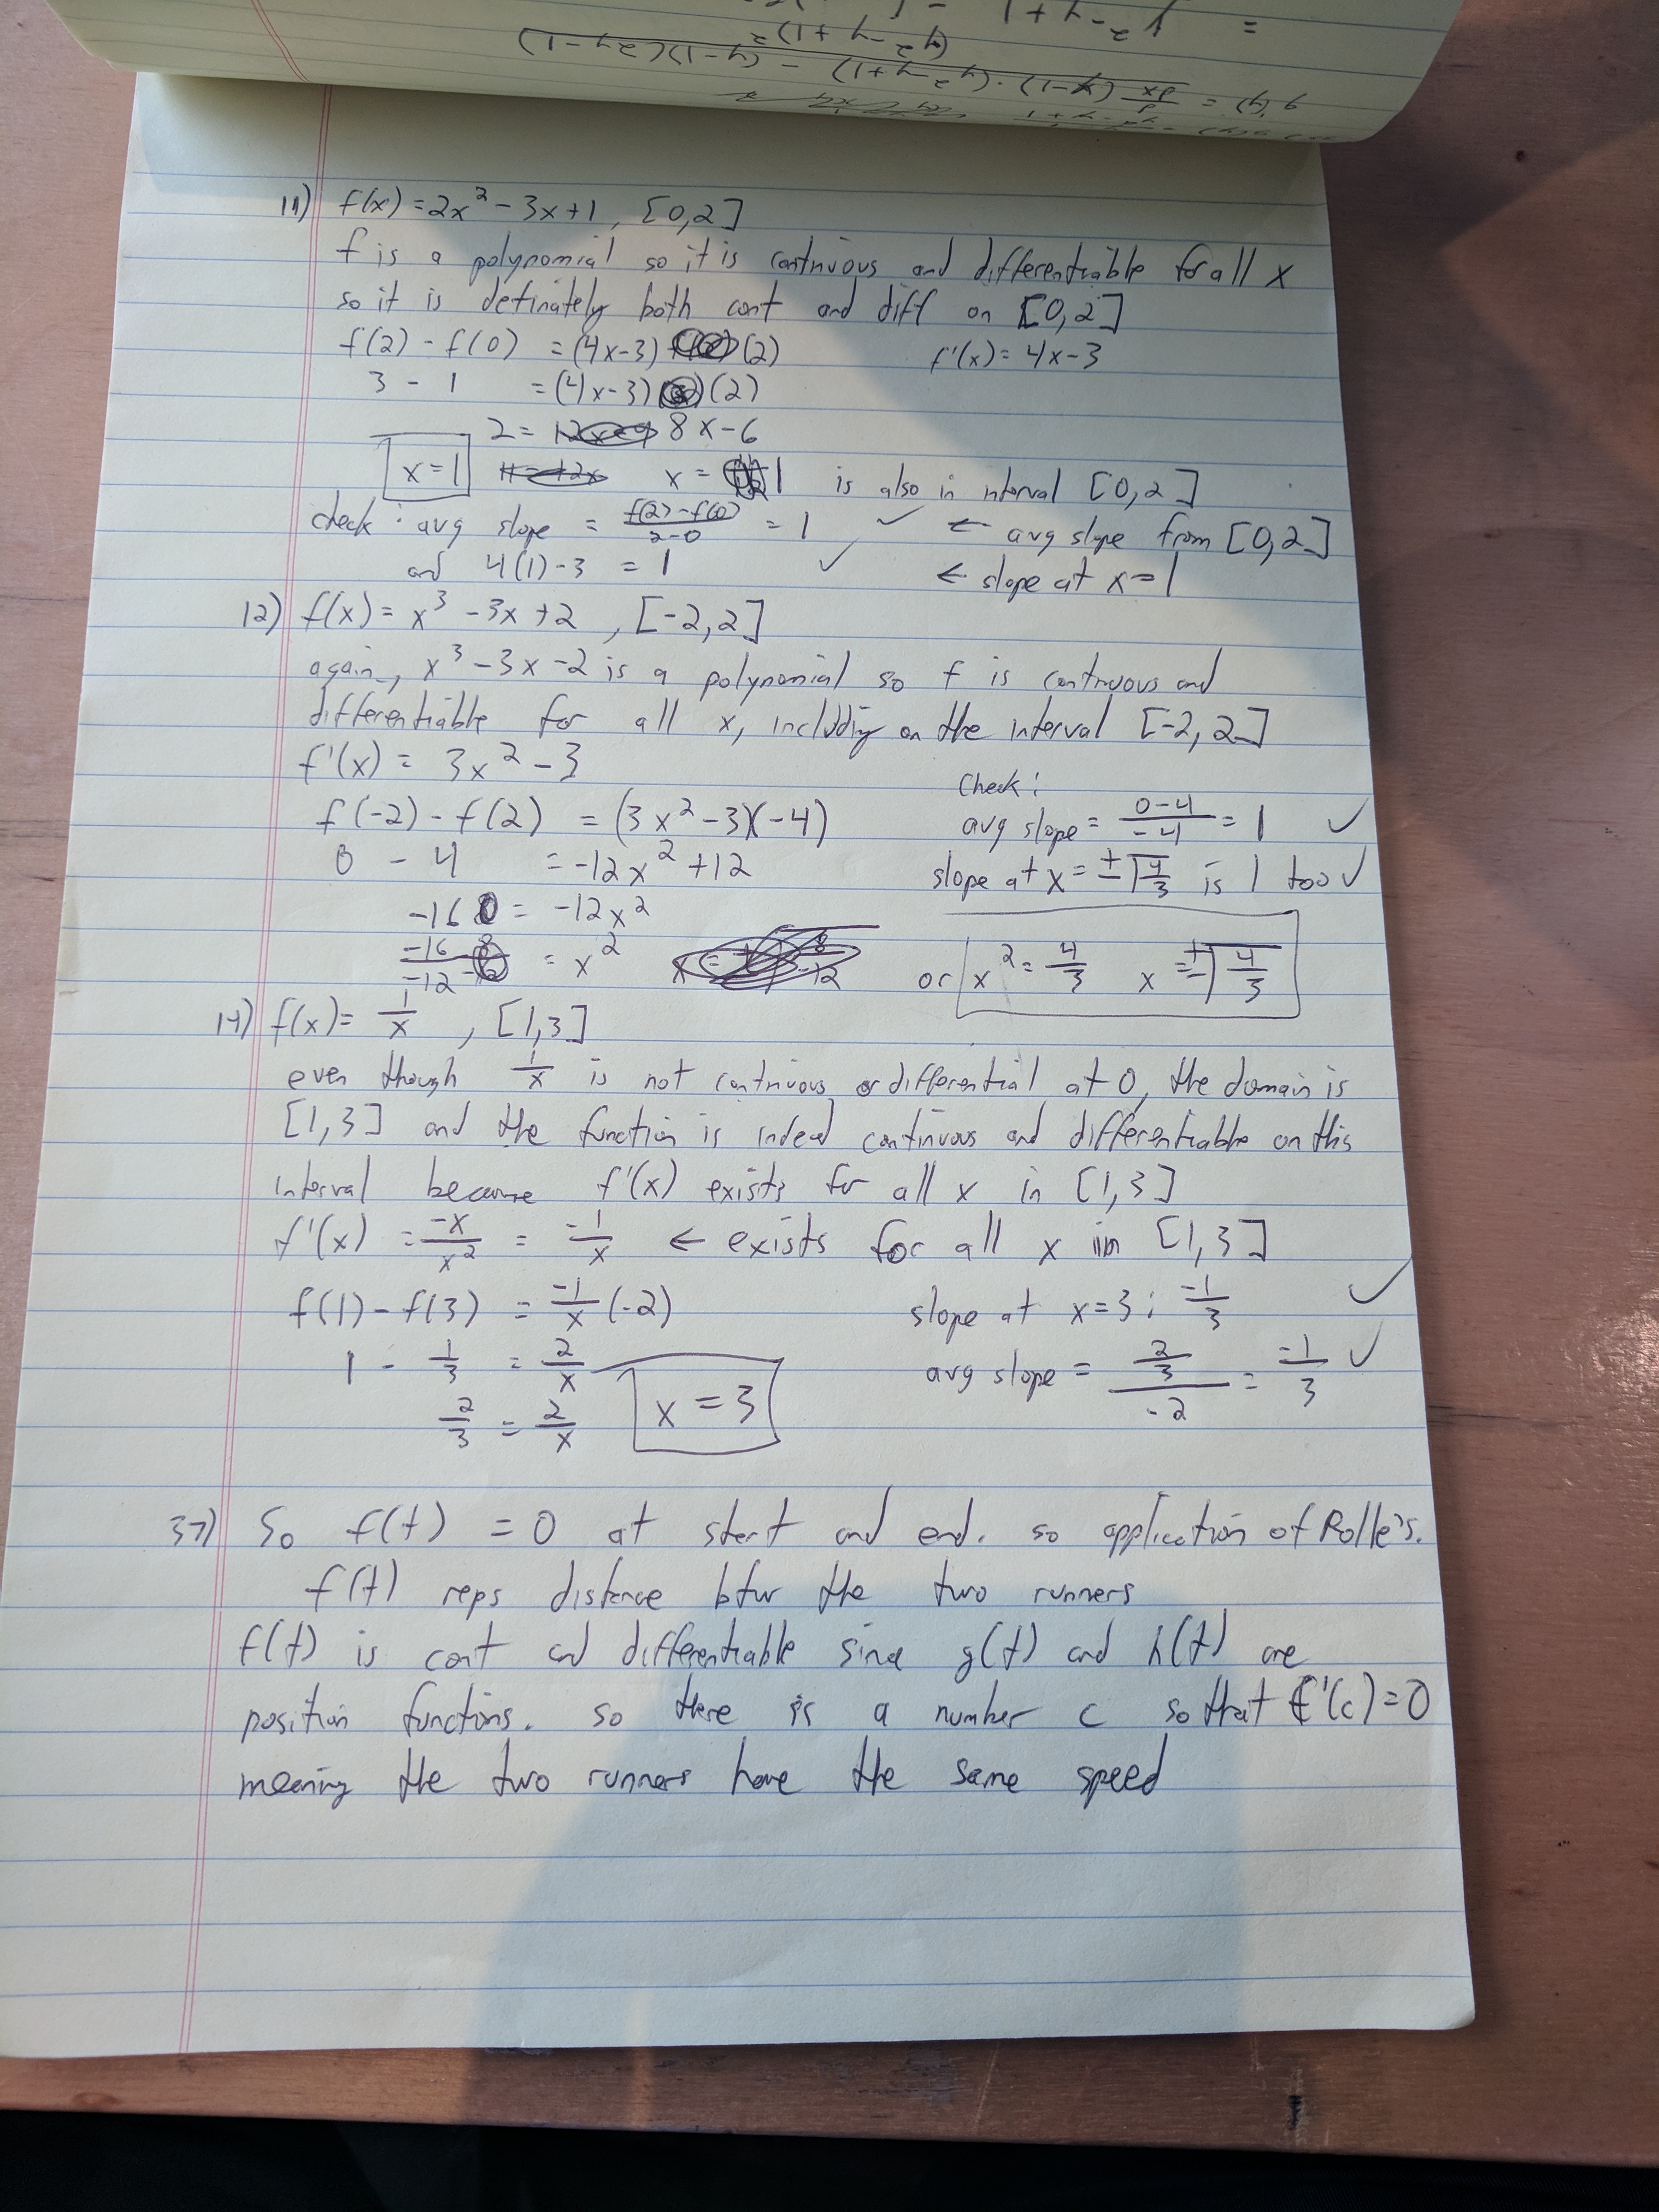 = y² - y + 1
(y² - y + 1)²
g'(y) = d/dx (y-1) · (y² - y + 1) - (y-1)(2y-1)
11) f(x) = 2x² - 3x + 1, [0,2]
f is a polynomial so it is continuous and differentiable for all x
so it is definately both cont and diff on [0,2]
f(2) - f(0) = (4x-3) (2) f'(x) = 4x-3
3 - 1 = (4x-3) (2)
2 = 8x-6
x=1 x = 1 is also in interval [0,2]
check: avg slope = f(2)-f(0)/2-0 = 1 ✓ ← avg slope from [0,2]
and 4(1)-3 = 1 ✓ ← slope at x=1
12) f(x) = x³ - 3x + 2, [-2,2]
again, x³ - 3x - 2 is a polynomial so f is continuous and
differentiable for all x, including on the interval [-2,2]
f'(x) = 3x² - 3
check:
f(-2) - f(2) = (3x²-3)(-4) avg slope = 0-4/-4 = 1 ✓
0 - 4 = -12x² + 12 slope at x = ±√4/3 is 1 too ✓
-16 = -12x²
-16/-12 = x² or x² = 4/3 x = ±√4/3
14) f(x) = 1/x, [1,3]
even though 1/x is not continuous or differential at 0, the domain is
[1,3] and the function is indeed continuous and differentiable on this
interval because f'(x) exists for all x in [1,3]
f'(x) = -x/x² = -1/x ← exists for all x in [1,3]
f(1) - f(3) = -1/x (-2) slope at x=3: -1/3 ✓
1 - 1/3 = 2/x x = 3 avg slope = 2/3/-2 = -1/3 ✓
2/3 = 2/x
37) So f(t) = 0 at start and end. so application of Rolle's.
f(t) reps distance btw the two runners
f(t) is cont and differentiable since g(t) and h(t) are
position functions. so there is a number c so that f'(c)=0
meaning the two runners have the same speed